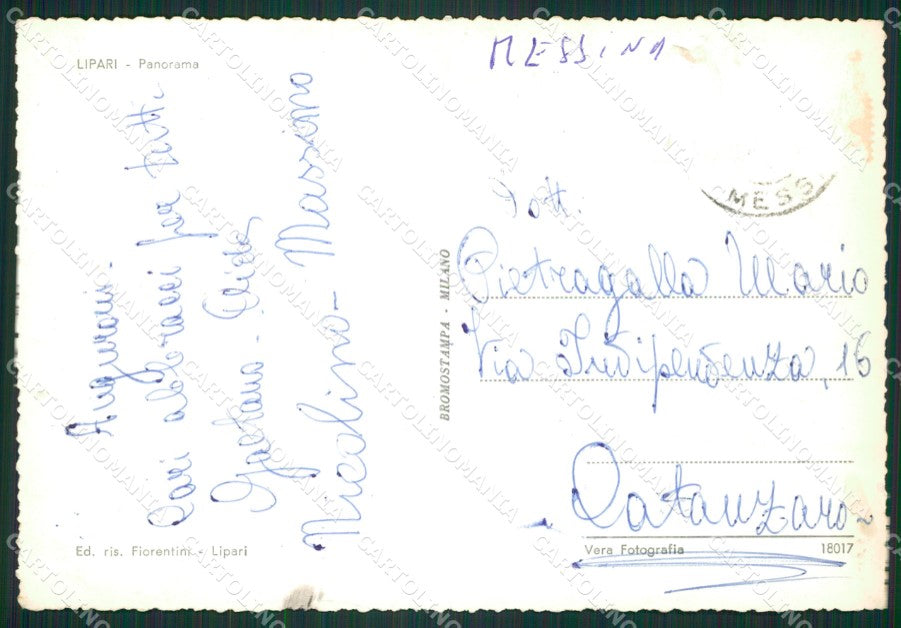 LIPARI - Panorama
MESSINA
MESS
Auguroni -
Cari abbracci per tutti.
Gaetano -
Nicolino - Massimo
BROMOSTAMPA - MILANO
Dott.
Pietragalla Mario
Via Indipendenza, 16
Catanzaro
Ed. ris. Fiorentini - Lipari
Vera Fotografia
18017
CARTOLINOMANIA